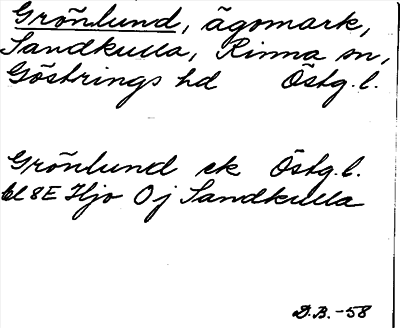 Grönlund, ägomark,
Sandkulla, Rinna sn,
Göstrings hd Östg.l.
Grönlund ek Östg.l.
bl 8E Hjo 0j Sandkulla
D.B.-58